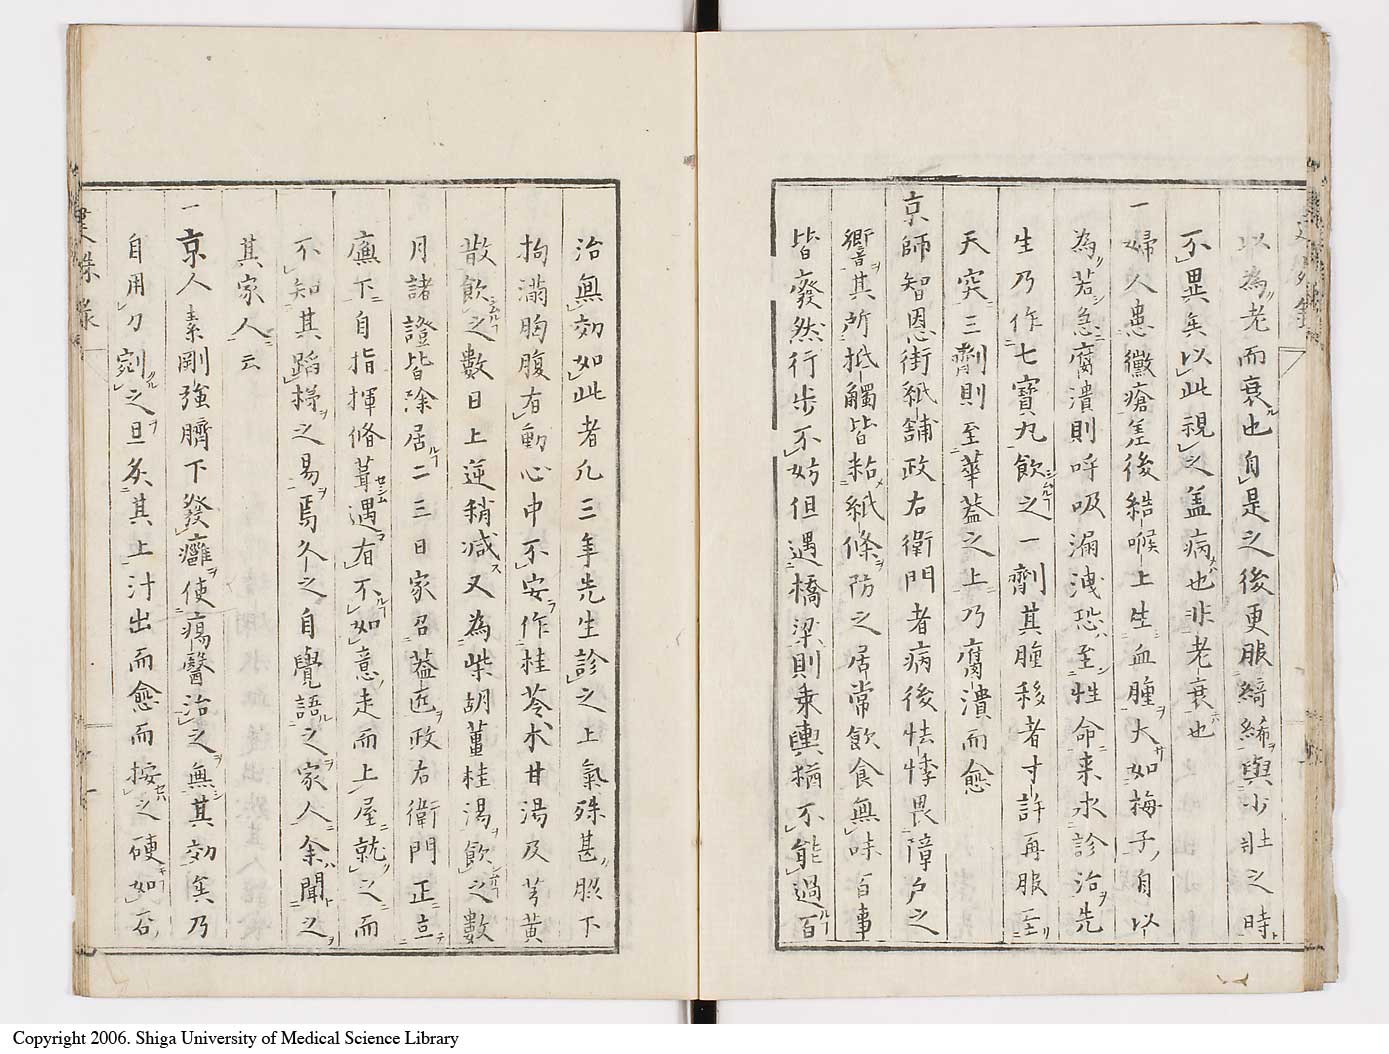 以為老而衰也自是之後更服綺絺與少壮之時
不異矣以此視之盖病也非老衰也
一婦人患黴瘡差後結喉上生血腫大如梅子自以
為若急腐潰則呼吸漏洩恐至性命来求診治先
生乃作七寳丸飲之一劑其腫移者寸許再服至
天突三劑則至華蓋之上乃腐潰而愈
京師智恩街紙舗政右衛門者病後怯悸畏障戸之
響其所抵觸皆粘紙條防之居常飲食無味百事
皆廢然行歩不妨但遇橋梁則乗輿猶不能過百
治無効如此者凢三年先生診之上氣殊甚臍下
拘満胸腹有動心中不安作桂苓朮甘湯及芎黄
散飲之數日上逆稍减又為柴胡薑桂湯飲之數
月諸證皆除居二三日家召蓋匠政右衛門正立
廡下自指揮脩葺遇有不如意走而上屋就之而
不知其蹈梯之易焉久之自覺語之家人余聞之
其家人云
一京人素剛強臍下發癰使瘍醫治之無其効矣乃
自用刀剜之且灸其上汁出而愈而按之硬如石
建殊録